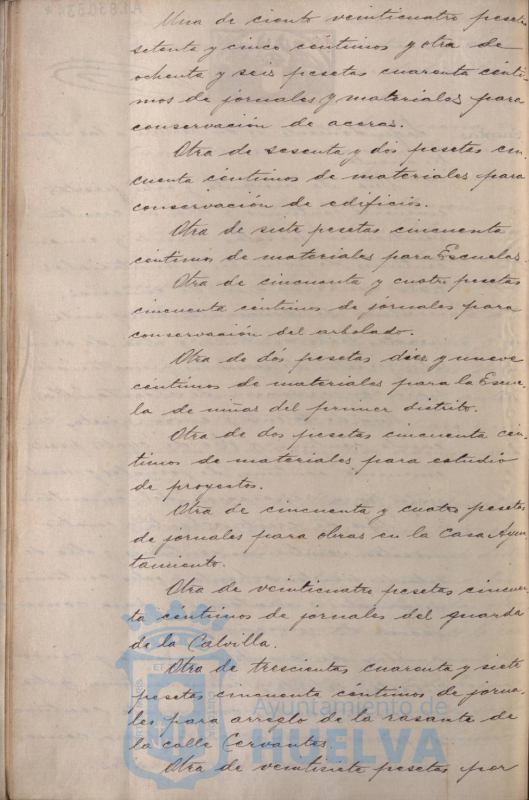 Una de ciento veinticuatro pesetas
setenta y cinco céntimos y otra de
ochenta y seis pesetas cuarenta cénti
mos de jornales y materiales para
conservación de aceras.
Otra de sesenta y dos pesetas cin
cuenta céntimos de materiales para
conservación de edificios.
Otra de siete pesetas cincuenta
céntimos de materiales para Escuelas.
Otra de cincuenta y cuatro pesetas
cincuenta céntimos de jornales para
conservación del arbolado.
Otra de dós pesetas diez y nueve
céntimos de materiales para la Escue
la de niñas del primer distrito.
Otra de dos pesetas cincuenta cén
timos de materiales para estudio
de proyectos.
Otra de cincuenta y cuatro pesetas
de jornales para obras en la Casa Ayun
tamiento.
Otra de veinticuatro pesetas cincuen
ta céntimos de jornales del guarda
de la Calvilla.
Otra de trescientas cuarenta y siete
pesetas cincuenta céntimos de jorna
les para arreglo de la rasante de
la calle Cervantes.
Otra de veintisiete pesetas por
Ayuntamiento de
HUELVA